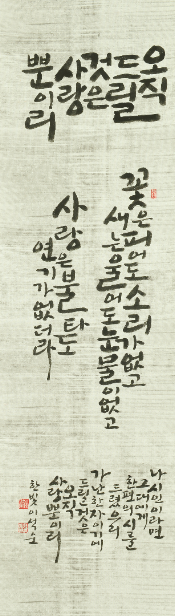 오직
드릴
것은
사랑
뿐이리
꽃은 피어도 소리가 없고
새는 울어도 눈물이 없고
사랑은 불타도
연기가 없더라
나 시인이라면
그대에게
한편의 시를
드렸으리
가난한 자이기에
드릴 것은
오직
사랑뿐이리
한빛 이석소